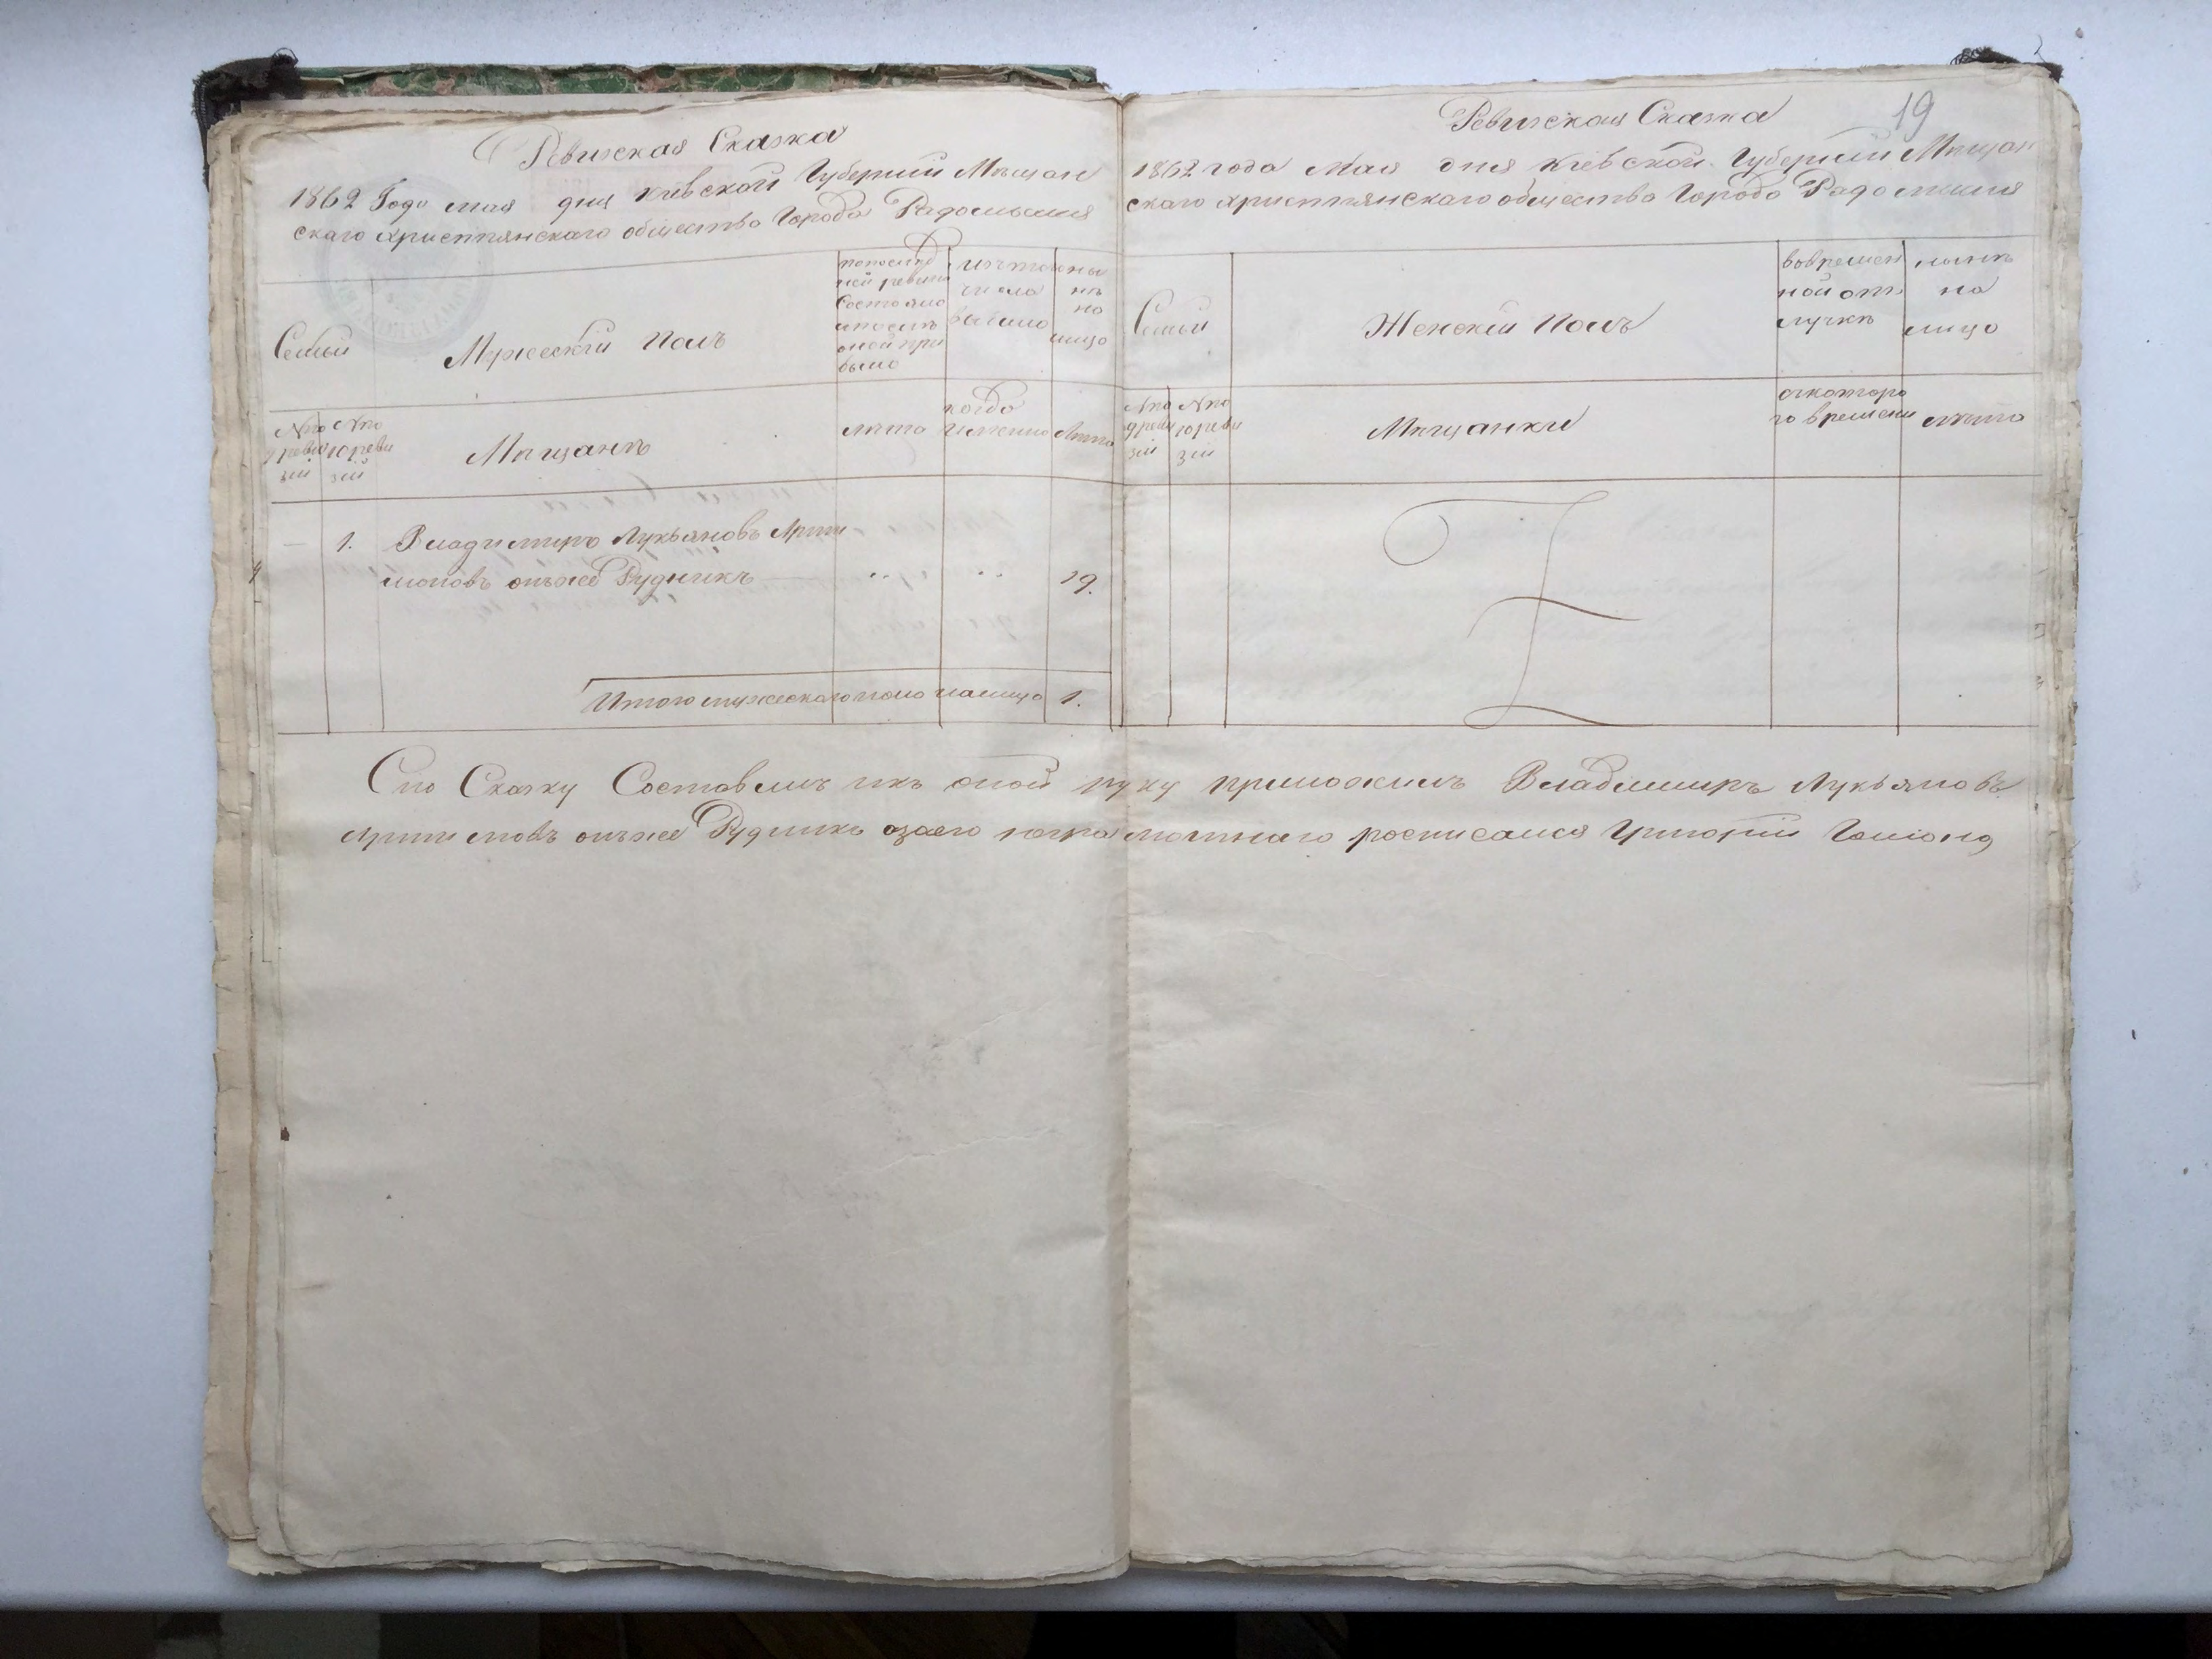 Ревизская Сказка
1862 Года мая дня Киевской Губернии Мещан
скаго християнскаго общества Города Радомысля
Семьи
Мужескій Полъ
по послед
ней ревизіи
Состояло
и после
оной при
было
изъ того
числа
выбыло
ны
не
на
лицо
№ по
9 реви
зіи
№ по
10 реви
зіи
Мещане
лета
когда
именно
Лета
1.
Владимиръ Лукьяновъ Арти
моновъ онъже Рудникъ
19.
Итого мужескаго пола налицо 1.
19
Ревизская Сказка
1862 года Мая дня Киевской Губернии Мещан
скаго християнскаго общества Города Радомысля
Семьи
Женскій Полъ
вовремен
ной от
лучке
ныне
на
лицо
№ по
9 реви
зіи
№ по
10 реви
зіи
Мещанки
скоторо
го времени
лета
Сію Сказку Составилъ икъ оной руку приложилъ Владимиръ Лукьяновъ
онъже Рудникъ азаего неграмотнаго росписался Григорій